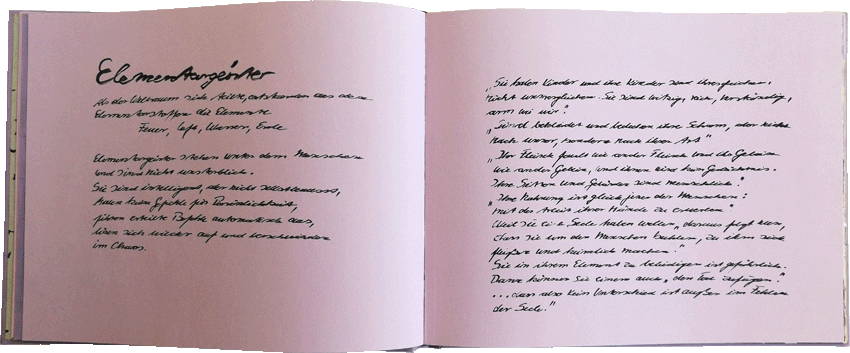 Elementargeister
Als der Weltraum sich teilte, entstanden aus den
Elementarstoffen die Elemente
Feuer, Luft, Wasser, Erde
Elementargeister stehen unter dem Menschen
und sind nicht unsterblich.
Sie sind intelligent, aber nicht selbstbewusst,
haben kein Gefühl für Persönlichkeit,
führen erteilte Befehle automatisch aus,
lösen sich wieder auf und verschwinden
im Chaos.
„Sie haben Kinder und ihre Kinder sind ihresgleichen,
nicht unsresgleichen. Sie sind witzig, reich, verständig,
arm wie wir."
„Sind bekleidet und bedecken ihre Scham, aber nicht
nach unserer, sondern nach ihrer Art"
„Ihr Fleisch fault wie ander Fleisch und ihr Gebein
wie ander Gebein, und ihrer wird kein Gedächtnis.
Ihre Sitten und Gebärden sind menschlich."
„Ihre Nahrung ist gleich jener der Menschen:
mit der Arbeit ihrer Hände zu erwerben."
Weil sie keine Seele haben wollen „daraus folgt nun,
dass sie um den Menschen buhlen, zu ihm sich
fleißen und heimlich machen."
Sie in ihrem Element zu beleidigen ist gefährlich.
Dann können sie einem auch „den Tod zufügen."
"...dass also kein Unterschied ist außer im Fehlen
der Seele."